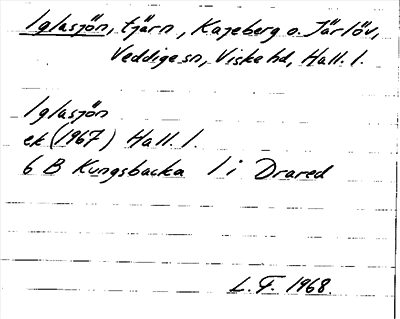 Iglasjön, tjärn, Kageberg o. Järlöv,
Veddige sn, Viske hd, Hall. l.
Iglasjön
ek (1967) Hall. l.
6 B Kungsbacka 1 i Drared
L.F. 1968.